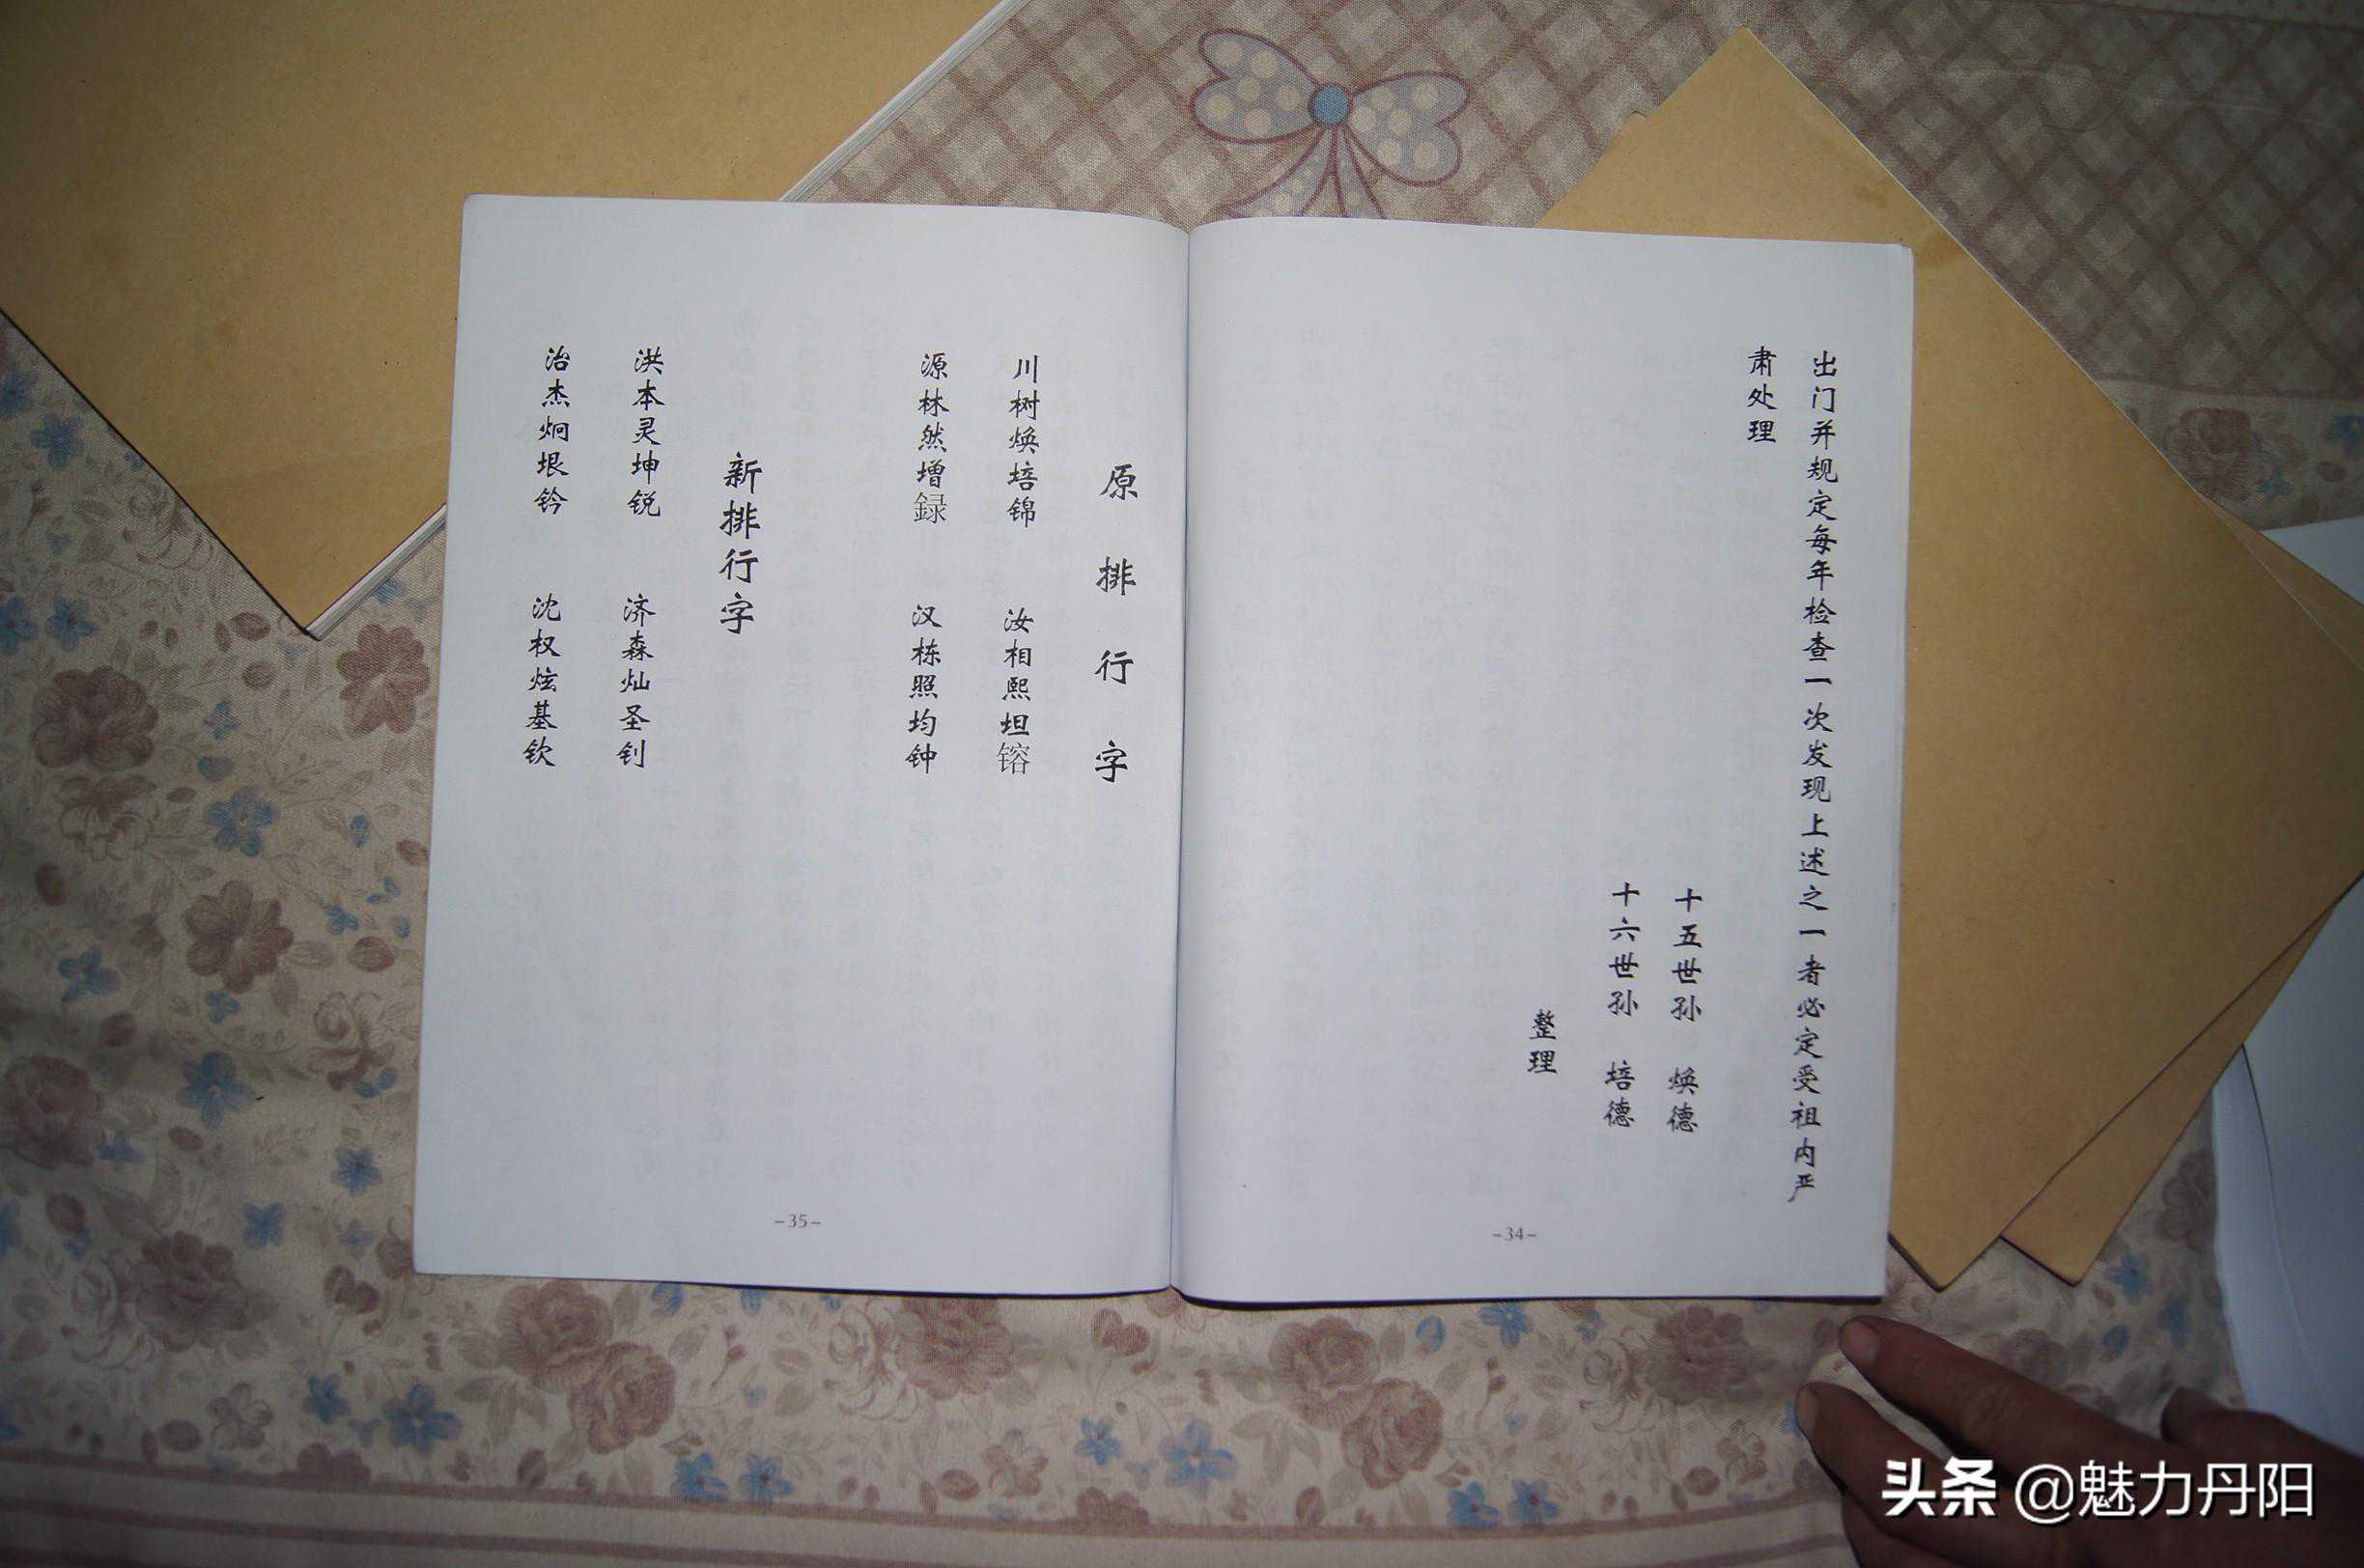 出门并规定每年检查一次发现上述之一者必定受祖内严
肃处理
十五世孙 焕德
十六世孙 培德
整理
-34-
原排行字
川树焕培锦 汝相熙坦镕
源林然增録 汉栋照均钟
新排行字
洪本灵坤锐 济森灿圣钊
治杰炯垠钤 沈权炫基钦
-35-
头条 @魅力丹阳